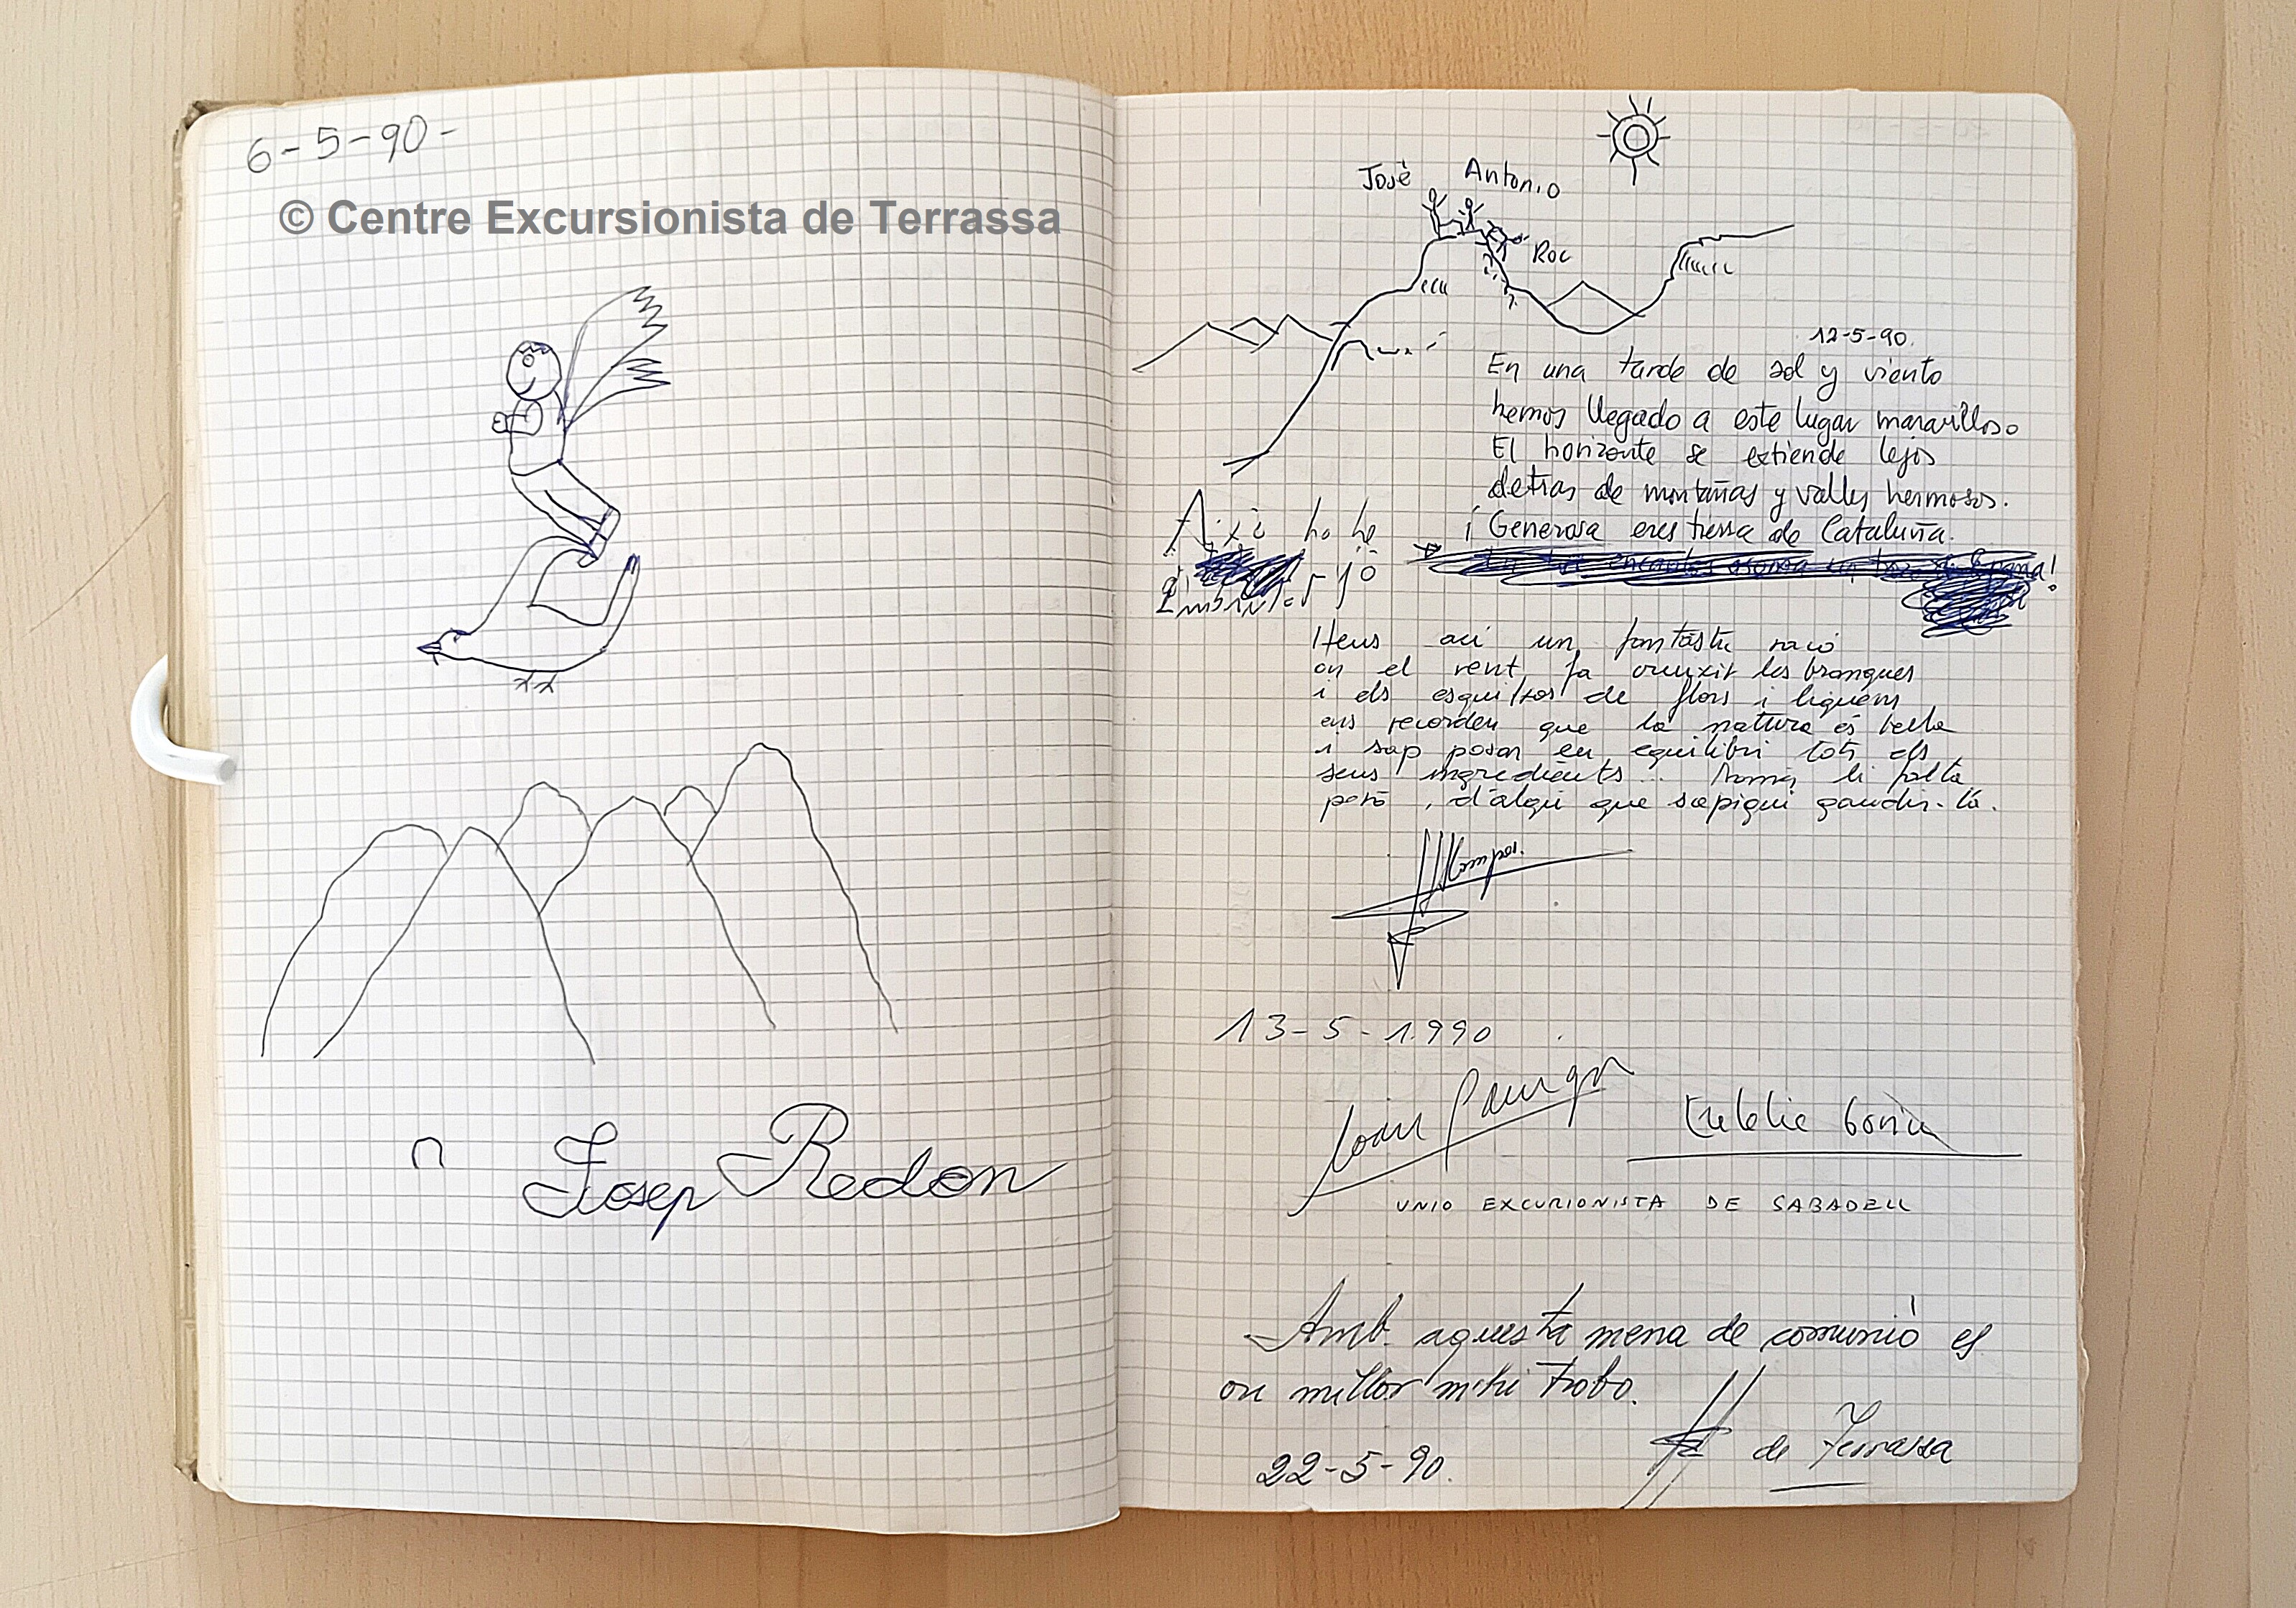 6-5-90-
© Centre Excursionista de Terrassa
Josep Redon
José Antonio
Roc
12-5-90.
En una tarde de sol y viento
hemos llegado a este lugar maravilloso
El horizonte se extiende lejos
detras de montañas y valles hermosos.
¡Generosa eres tierra de Cataluña.
Això ho he
jo
Heus ací un fantàstic racó
on el vent fa cruixir les branques
i els esquitxos de flors i líquens
ens recorden que la natura és bella
i sap posar en equilibri tots els
seus ingredients... Només li falta
però, d'algú que sàpigui gaudir-la.
13-5-1990
Joan
UNIO EXCURIONISTA DE SABADELL
Amb aquesta mena de comunió es
on millor m'hi trobo.
22-5-90.
de Terrassa